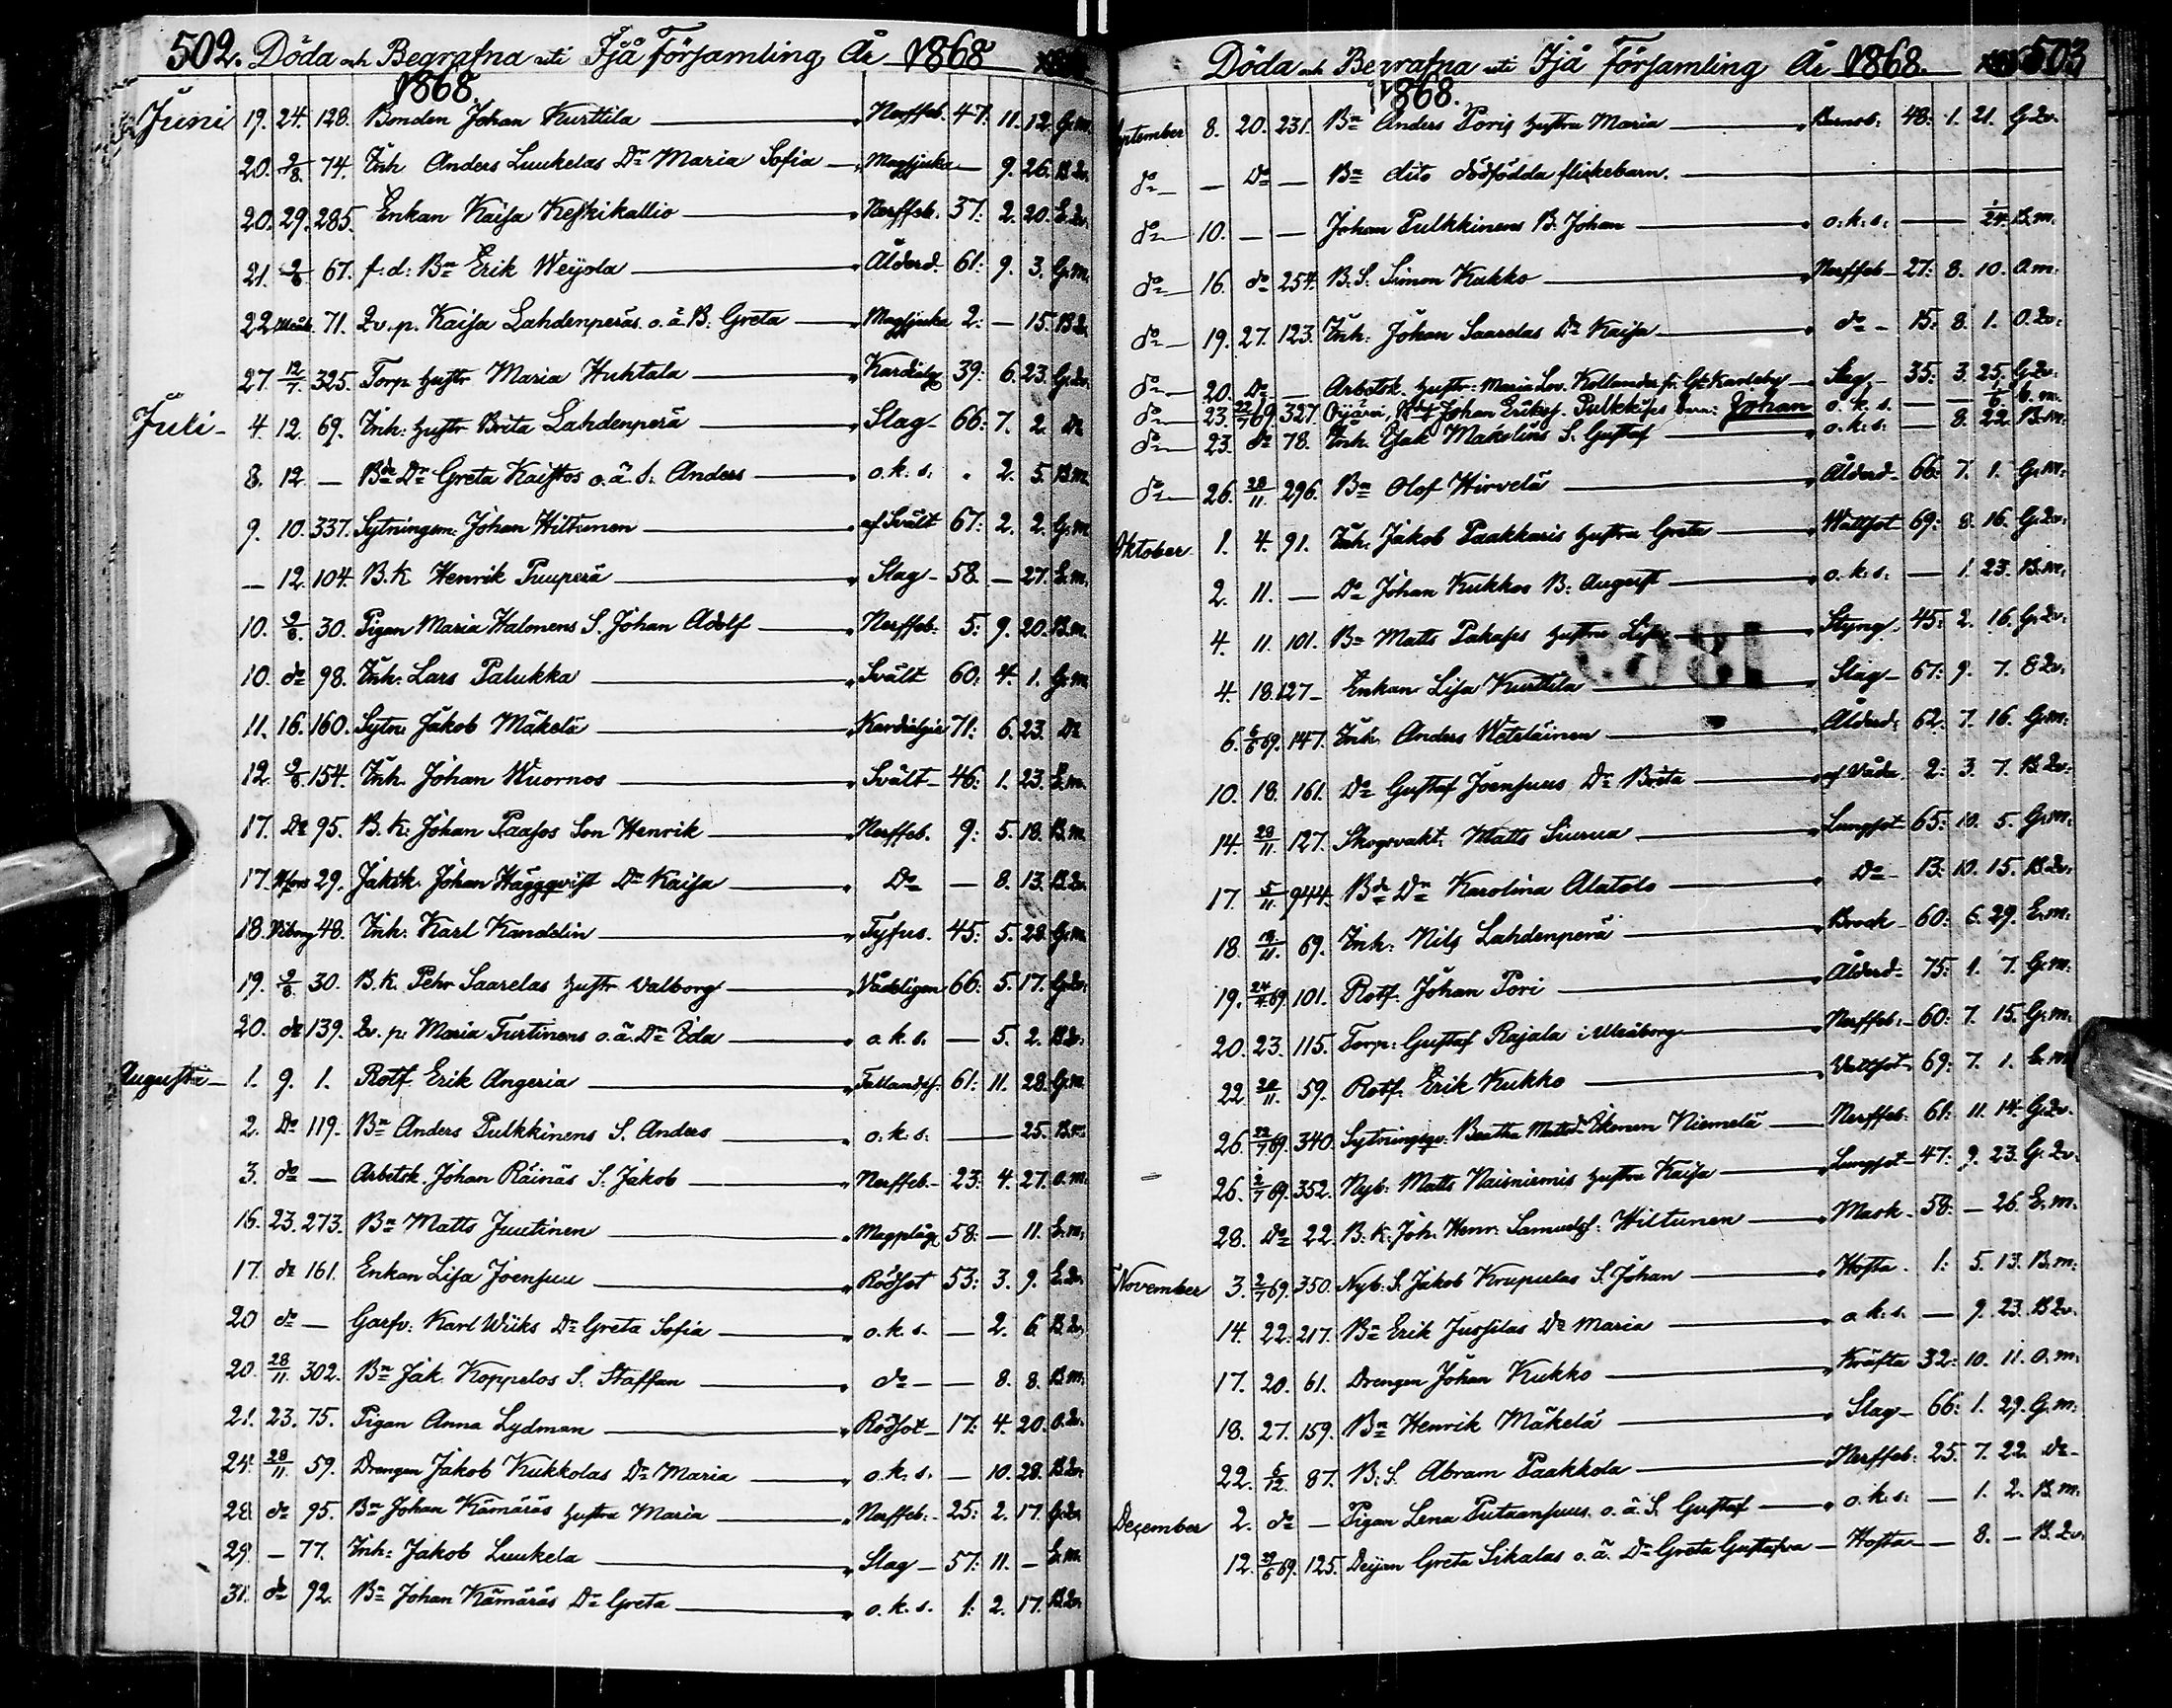 502. Döda och Begrafna uti Ijå Församling År 1868
1868.
Juni 19. 24. 128. Bonden Johan Kurttila Nerffeb. 47. 11. 12. G.m.
20. 2/8. 74. Inh Anders Luukelas Dr Maria Sofia Magsjuka — 9. 26. B.Qv.
20. 29. 285. Enkan Kaisa Keskikallio Nerffeb. 37: 2. 20. E.Qv.
21. 2/8 67. f:d: Bn Erik Weijola Ålderd. 61: 9. 3. G.m.
22 Uleåb. 71. Qv.p. Kaisa Lahdenperäs o.ä. B. Greta Magsjuka 2: — 15. B.Qv.
27. 12/7. 325. Torp. Hustr Maria Huhtala Kardialg 39: 6. 23. G.Qv.
Juli 4. 12. 69. Inh: Hustr Brita Lahdenperä Slag 66: 7. 2. Do
8. 12. — Bde Dr Greta Kaistos o.ä. S. Anders o.k.s. . 2. 5. B.m.
9. 10. 337. Sytningsm. Johan Hiltunen af Svält 67: 2. 2. G.m.
— 12. 104. B.K Henrik Puuperä Slag 58. — 27. E.m.
10. 2/8. 30. Pigan Maria Halonens S. Johan Adolf Nerffeb: 5: 9. 20. B.m.
10. do 98. Inh: Lars Palukka Svält 60: 4. 1. G.m.
11. 16. 160. Sytn: Jakob Mäkelä Kardialgia 71: 6. 23. Do
12. 2/8. 154. Inh. Johan Wuornos Svält 46: 1. 23. E.m.
17. Do 95. B.K: Johan Paasos Son Henrik Nerffeb. 9: 5. 18. B.m.
17. Hfors 29. Jaktk. Johan Häggqvist Dr Kaisa Do — 8. 13. B.Qv.
18. Wiborg 48. Inh: Karl Kandelin Tyfus. 45: 5. 28. G.m.
19. 2/8. 30. B.K. Pehr Saarelas Hustr Valborg Vådeligen 66: 5. 17. G.Qv.
20. do 139. Qv.p: Maria Turtinens o.ä. Dr Ida o.k.s. — 5. 2. B.Qv.
Augusti 1. 9. 1. Rotf Erik Angeria Fallandsj. 61: 11. 28. G.m.
2. Do 119. Bn Anders Pulkkinens S. Anders o.k.s. — 25. B.m.
3. do — Arbetsk. Johan Räinäs S. Jakob Nerffeb. 23: 4. 27. O.m.
16. 23. 273. Bn Matts Juutinen Magplåg 58: — 11. E.m.
17. do 161. Enkan Lisa Joensuu Rödsot 53: 3. 9. E.Qv.
20 do — Garfv: Karl Wiiks Dr Greta Sofia o.k.s. — 2. 6. B.Qv.
20. 28/11. 302. Bn Jak. Koppelos S. Staffan do — — 8. 8. B.m.
21. 23. 75. Pigan Anna Lydman Rödsot 17: 4. 20. O.Qv.
24. 28/11. 59. Drengen Jakob Kukkolas Dr Maria o.k.s. — 10. 28. B.Qv.
28 do 95. Bn Johan Kämäräs Hustru Maria Nerffeb. 25: 2. 17. G.Qv.
29 — 77. Inh: Jakob Luukela Slag 57: 11. — E.m.
31. do 92. Bn Johan Kämäräs Dr Greta o.k.s. 1: 2. 17. B.Qv.
Döda och Begrafna uti Ijå Församling År 1868. 503
1868.
September 8. 20. 231. Bn Anders Poris Hustru Maria Barnsb: 48: 1. 21. G.Qv.
do — Do — Bn dito dödfödda flickebarn.
do 10. — — Johan Pulkkinens B. Johan o.k.s. — 1/24. B.m.
do 16. do 254. B.S. Simon Kukko Nerffeb 27: 8. 10. O.m.
do 19. 27. 123. Inh: Johan Saarelas Dr Kaisa do 15: 8. 1. O.Qv.
do 20. Do — Arbetsk. Hustr: Maria Lov. Kollander fr. G:Karleby Slag 35: 3. 25. G.Qv.
do 23. 22/7 69. 327. Johan Erikss. Pulkkises barn: Johan o.k.s. — 1/6 B.m.
do 23. do 78. Inh. Isak Makelins S. Gustaf o.k.s. — 8. 22. B.m.
do 26. 28/11. 296. Bn Olof Hirvelä Ålderd 66: 7. 1. G.m.
Oktober 1. 4. 91. Inh. Jakob Paakkaris Hustru Greta Wattsot 69: 8. 16. G.Qv.
2. 11. — Do Johan Kukkos B: August o.k.s. — 1. 23. B.m.
4. 11. 101. Bn Matts Pakases Hustru Lisa Styng. 45: 2. 16. G.Qv.
4. 18. 127 Enkan Lisa Kurttila Slag 67: 9. 7. E.Qv.
6. 6/6 69. 147. Inh. Anders Weteläinen Ålderd: 62. 7. 16. G.m.
10. 18. 161. Do Gustaf Joensuus Dr Brita af Våda 2: 3. 7. B.Qv.
14. 28/11. 127. Skogsvakt. Matts Siurua Lungsot 65: 10. 5. G.m.
17. 5/11. 944. Bde Dr Karolina Alatalo Do 13: 10. 15. B.Qv.
18. 18/11. 69. Inh: Nils Lahdenperä Brock 60: 6. 29. E.m.
19. 24/4 69. 101. Rotf. Johan Pori Ålderd 75: 1. 7. G.m.
20. 23. 115. Torp: Gustaf Rajala i Uleåborg Nerffeb: 60: 7. 15. G.m.
22. 28/11. 59. Rotf. Erik Kukko Vattsot 69: 7. 1. E.m.
26. 22/7 69. 340. Sytningsqv: Beatha Mattsd. Ikonen Niemelä Nerffeb. 61: 11. 14. G.Qv.
26. 2/7 69. 352. Nyb: Matts Naisniemis Hustru Kaisa Lungsot 47: 9. 23. G.Qv.
28. Do 22. B.K. Joh: Henr. Samuelss: Hiltunen Mask 58: — 26. E.m.
November 3. 2/7 69. 350. Nyb: S. Jakob Krupulas S. Johan Hosta. 1: 5. 13. B.m.
14. 22. 217. Bn Erik Jussilas Dr Maria o.k.s. — 9. 23. B.Qv.
17. 20. 61. Drengen Johan Kukko Kräfta 32: 10. 11. O.m.
18. 27. 159. Bn Henrik Mäkelä Slag 66: 1. 29. G.m.
22. 6/12. 87. B.S. Abram Paakkola Nerffeb: 25. 7. 22. do
December 2. do — Pigan Lena Putaansuus o.ä. S. Gustaf o.k.s. — 1. 2. B.m.
12. 29/6 69. 125. Dejan Greta Sikalas o.ä. Dr Greta Gustafva Hosta — 8. — B.Qv.